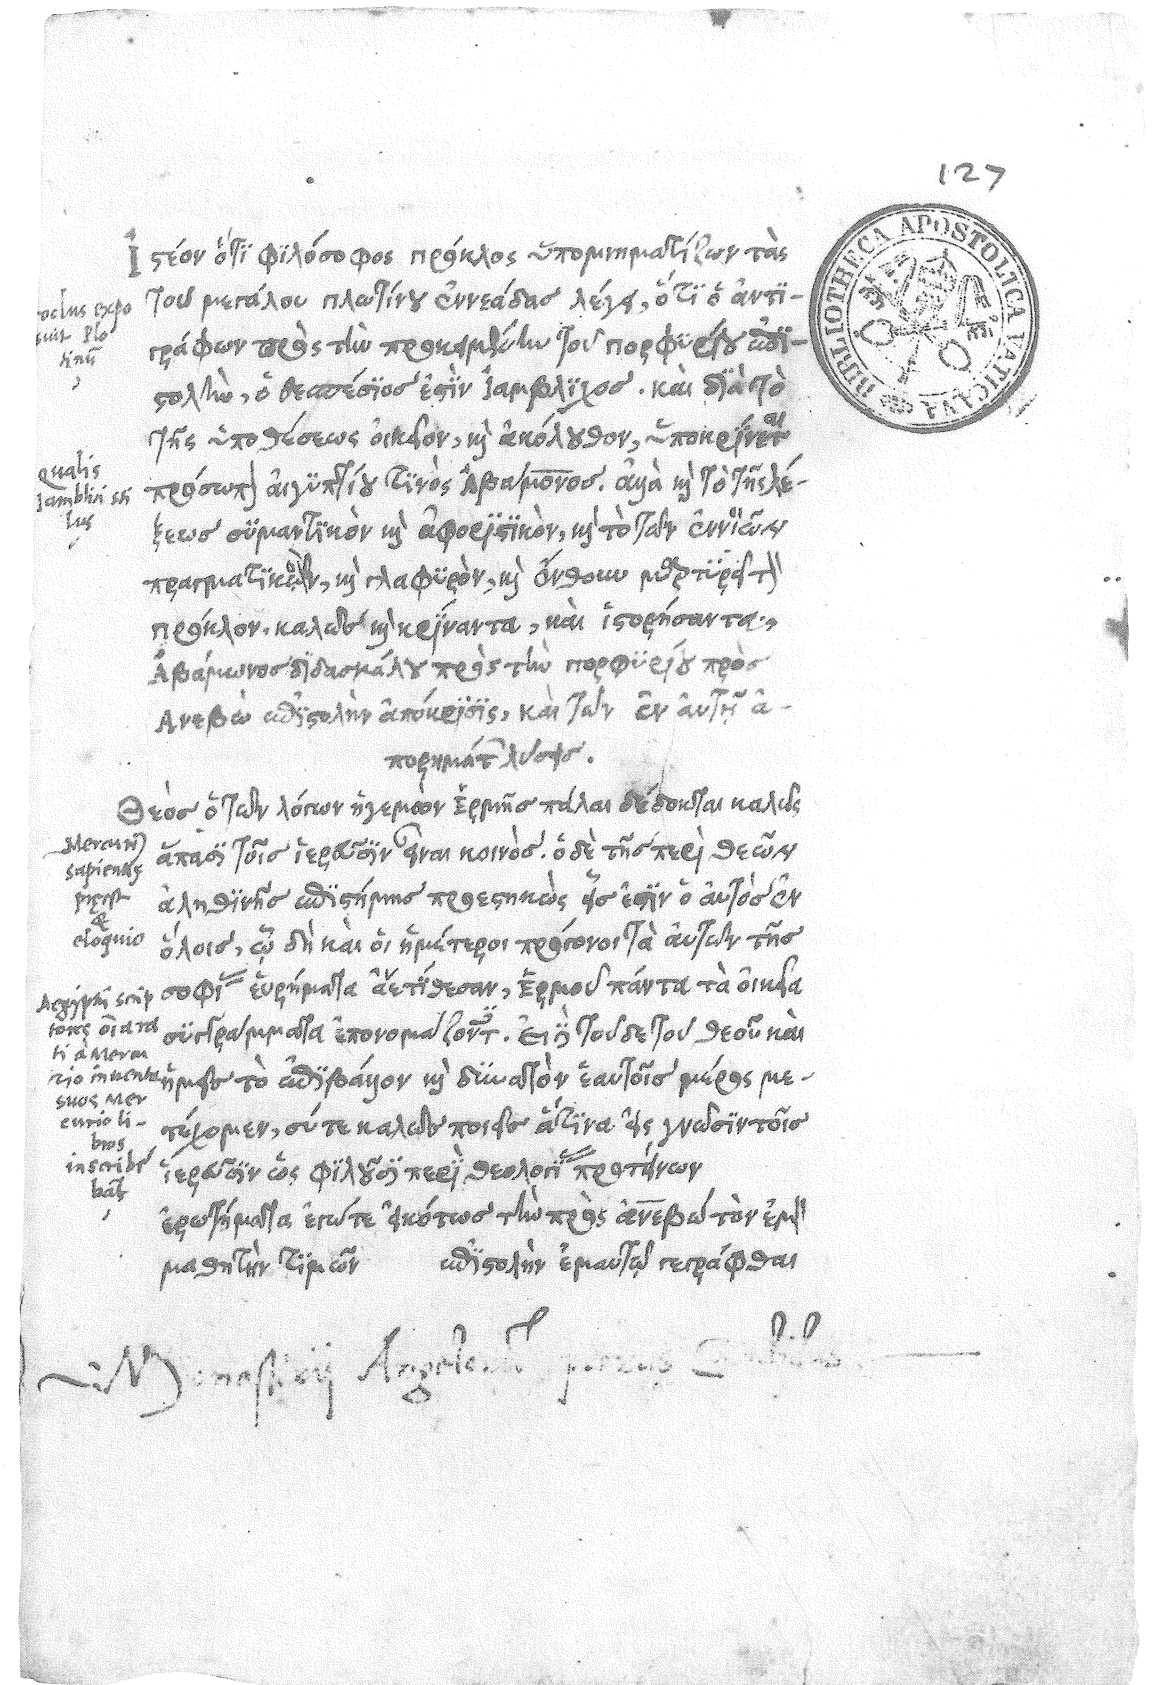 127
BIBLIOTHECA APOSTOLICA VATICANA
Ἰστέον ὅτι φιλόσοφος πρόκλος ὑπομνηματίζων τὰς
τοῦ μεγάλου πλωτίνου ἐννεάδας λέγει, ὅτι ὁ ἀντι-
γράφων πρὸς τὴν προκειμένην τοῦ πορφυρίου ἐπι-
στολὴν, ὁ θεσπέσιος ἐστὶν Ἰάμβλιχος. καὶ διὰ τὸ
τῆς ὑποθέσεως οἰκεῖον, καὶ ἀκόλουθον, ὑποκρίνεται
πρόσωπον αἰγυπτίου τινὸς Ἀβάμονος. ἀλλὰ καὶ τὸ τῆς λέ-
ξεως καὶ ἀφοριστικὸν, καὶ τὸ τῶν ἐννοιῶν
πραγματικὸν, καὶ γλαφυρὸν, καὶ ἔνθουν μαρτυρεῖ τὸν
πρόκλον. καλῶς καὶ κρίναντα, καὶ ἱστορήσαντα.
Ἀβάμωνος διδασκάλου πρὸς τὴν πορφυρίου πρὸς
Ἀνεβὼ ἐπιστολὴν ἀπόκρισις, καὶ τῶν ἐν αὐτῇ ἀ-
πορημάτ λύσεις.
Θεὸς ὁ τῶν λόγων ἡγεμὼν Ἑρμῆς πάλαι δέδοκται καλῶς
ἅπασι τοῖς ἱερεῦσιν εἶναι κοινὸς. ὁ δὲ τῆς περὶ θεῶν
ἀληθινῆς ἐπιστήμης προεστηκὼς εἷς ἐστὶν ὁ αὐτὸς ἐν
ὅλοις, ᾧ δὴ καὶ οἱ ἡμέτεροι πρόγονοι τὰ αὐτῶν τῆς
σοφίας εὑρήματα ἀνετίθεσαν, Ἑρμοῦ πάντα τὰ οἰκεῖα
συγγράμματα ἐπονομάζοντ. Εἰ δὲ τοῦδε τοῦ θεοῦ καὶ
ἡμεῖς τὸ ἐπιβάλλον καὶ δυνατὸν ἑαυτοῖς μέρος με-
τέχομεν, σύ τε καλῶς ποιεῖς ἅτινα εἰς γνῶσιν τοῖς
ἱερεῦσιν ὡς φιλοῦσι περὶ θεολογίας προτείνων
ἐρωτήματα ἐγώ τε εἰκότως τὴν πρὸς ἀνεβὼ τὸν ἐμὸν
μαθητὴν ἐπιστολὴν ἐμαυτῷ γεγράφθαι
expo
suit Plo
tinū
Qualis
Iamblici sti
lus
Mercurij
sapientes
&
eloquio
Aegyptij scrip
tores
ti à Mercu
rio inventa
suos Mer
curio li-
bros
inscribe
bāt